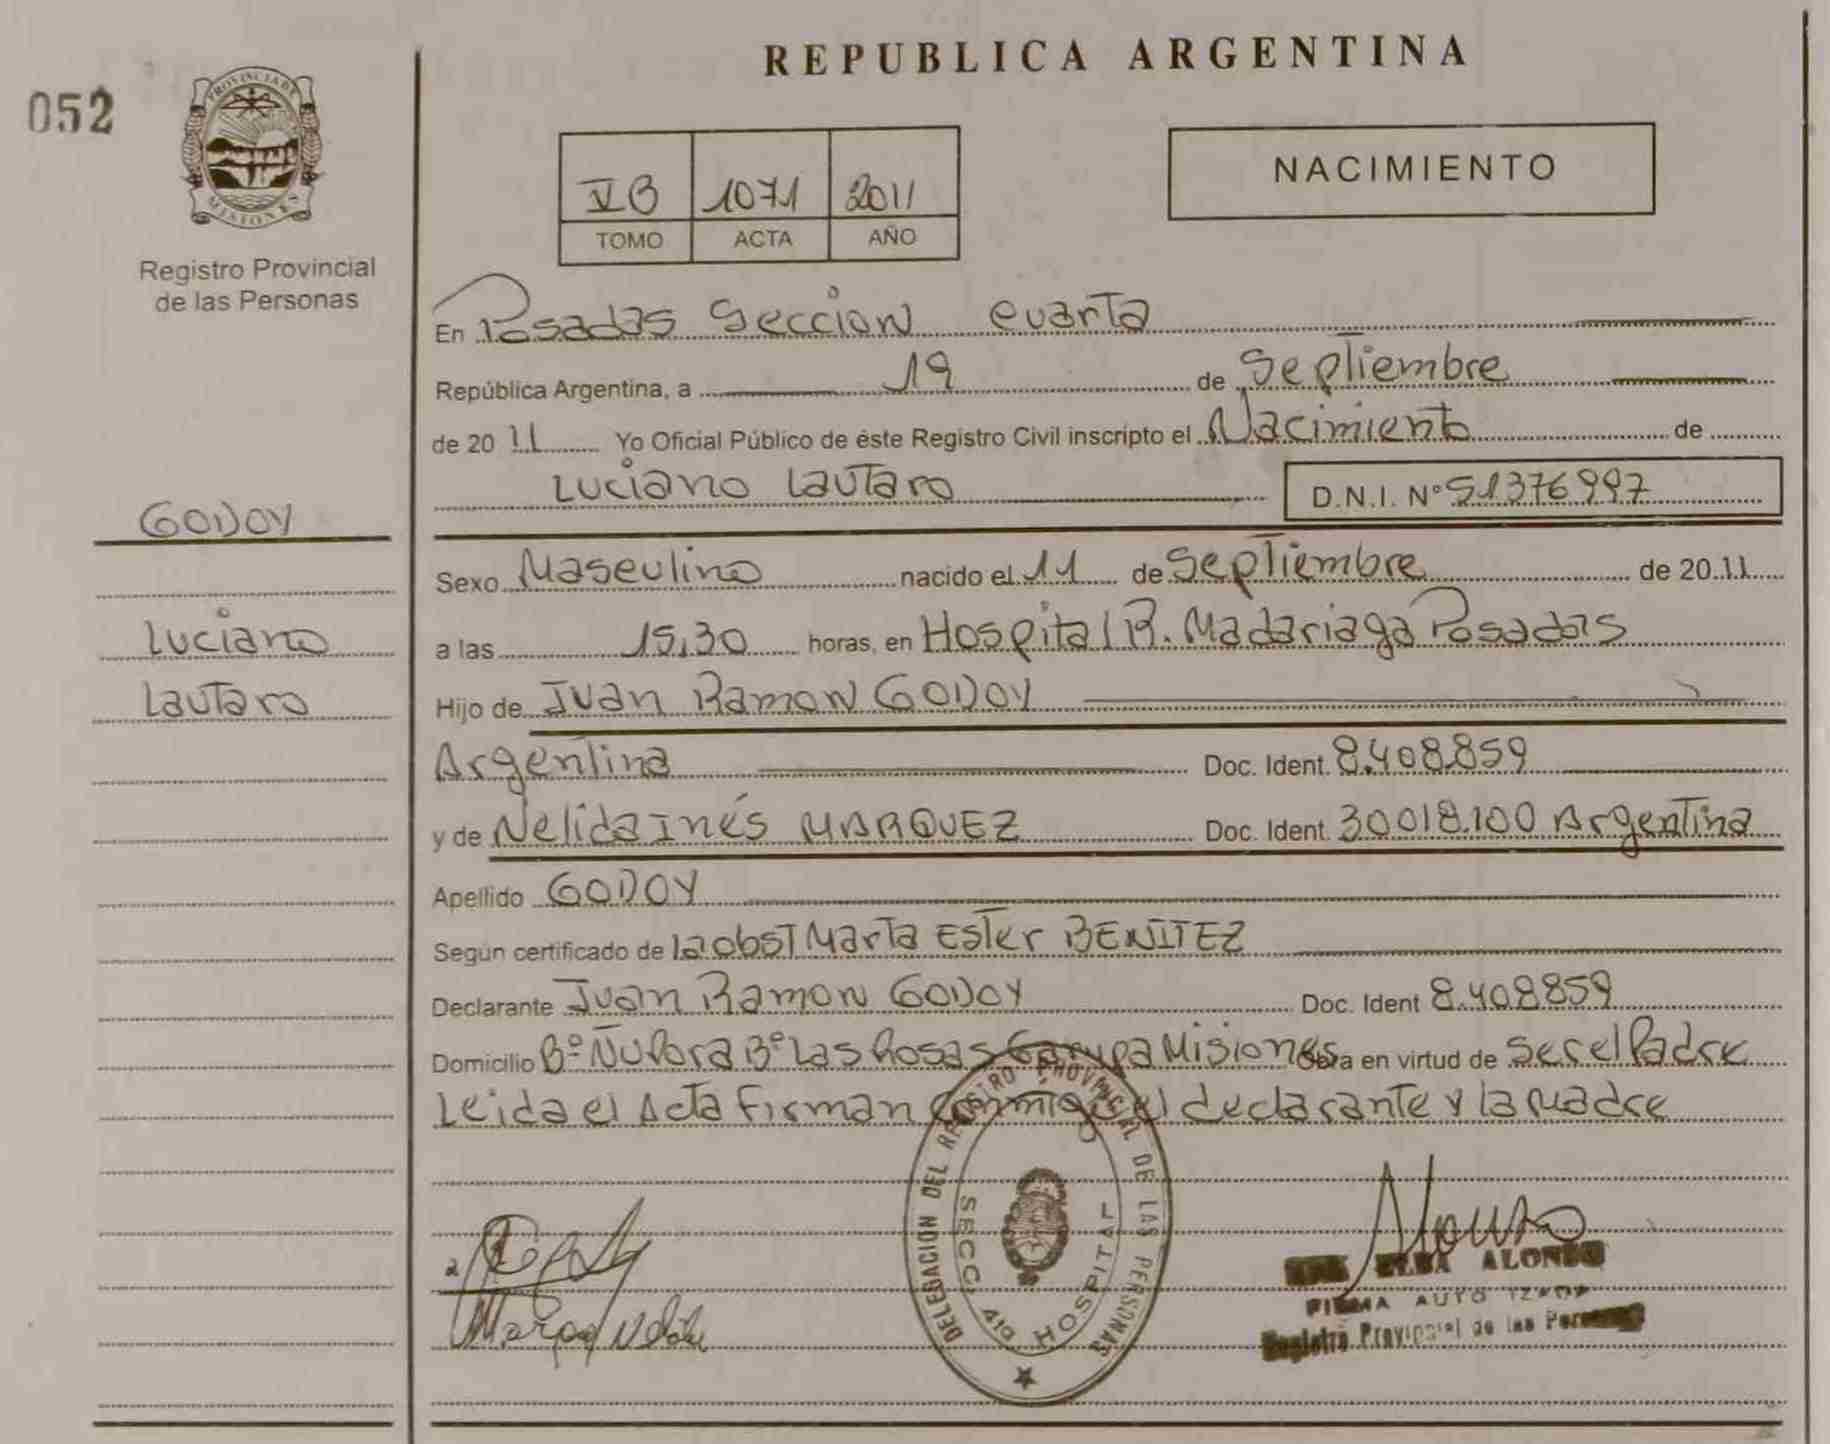 REPUBLICA ARGENTINA
052
PROVINCIA DE
MISIONES
Registro Provincial
de las Personas
VB 1071 2011
TOMO ACTA AÑO
NACIMIENTO
En Posadas Sección cuarta
República Argentina, a 19 de Septiembre
de 20 11 Yo Oficial Público de éste Registro Civil inscripto el Nacimiento de
Luciano Lautaro D.N.I. Nº 51376997
GODOY
Luciano
Lautaro
Sexo Masculino nacido el 11 de Septiembre de 20 11
a las 15,30 horas, en Hospital R. Madariaga Posadas
Hijo de Juan Ramon GODOY
Argentina Doc. Ident. 8.408.859
y de Nelida Inés MARQUEZ Doc. Ident. 30018.100 Argentina
Apellido GODOY
Segun certificado de la obst Marta Ester BENITEZ
Declarante Juan Ramon GODOY Doc. Ident 8.408859
Domicilio Bº Ñu Pora Bº Las Rosas Garupa Misiones Obra en virtud de Ser el Padre
Leida el Acta Firman conmigo el declarante y la Madre
DELEGACION DEL REGISTRO PROVINCIAL DE LAS PERSONAS
SECC. 4ta HOSPITAL
ELBA ALONSO
FIRMA AUTORIZADA
Registro Provincial de las Personas